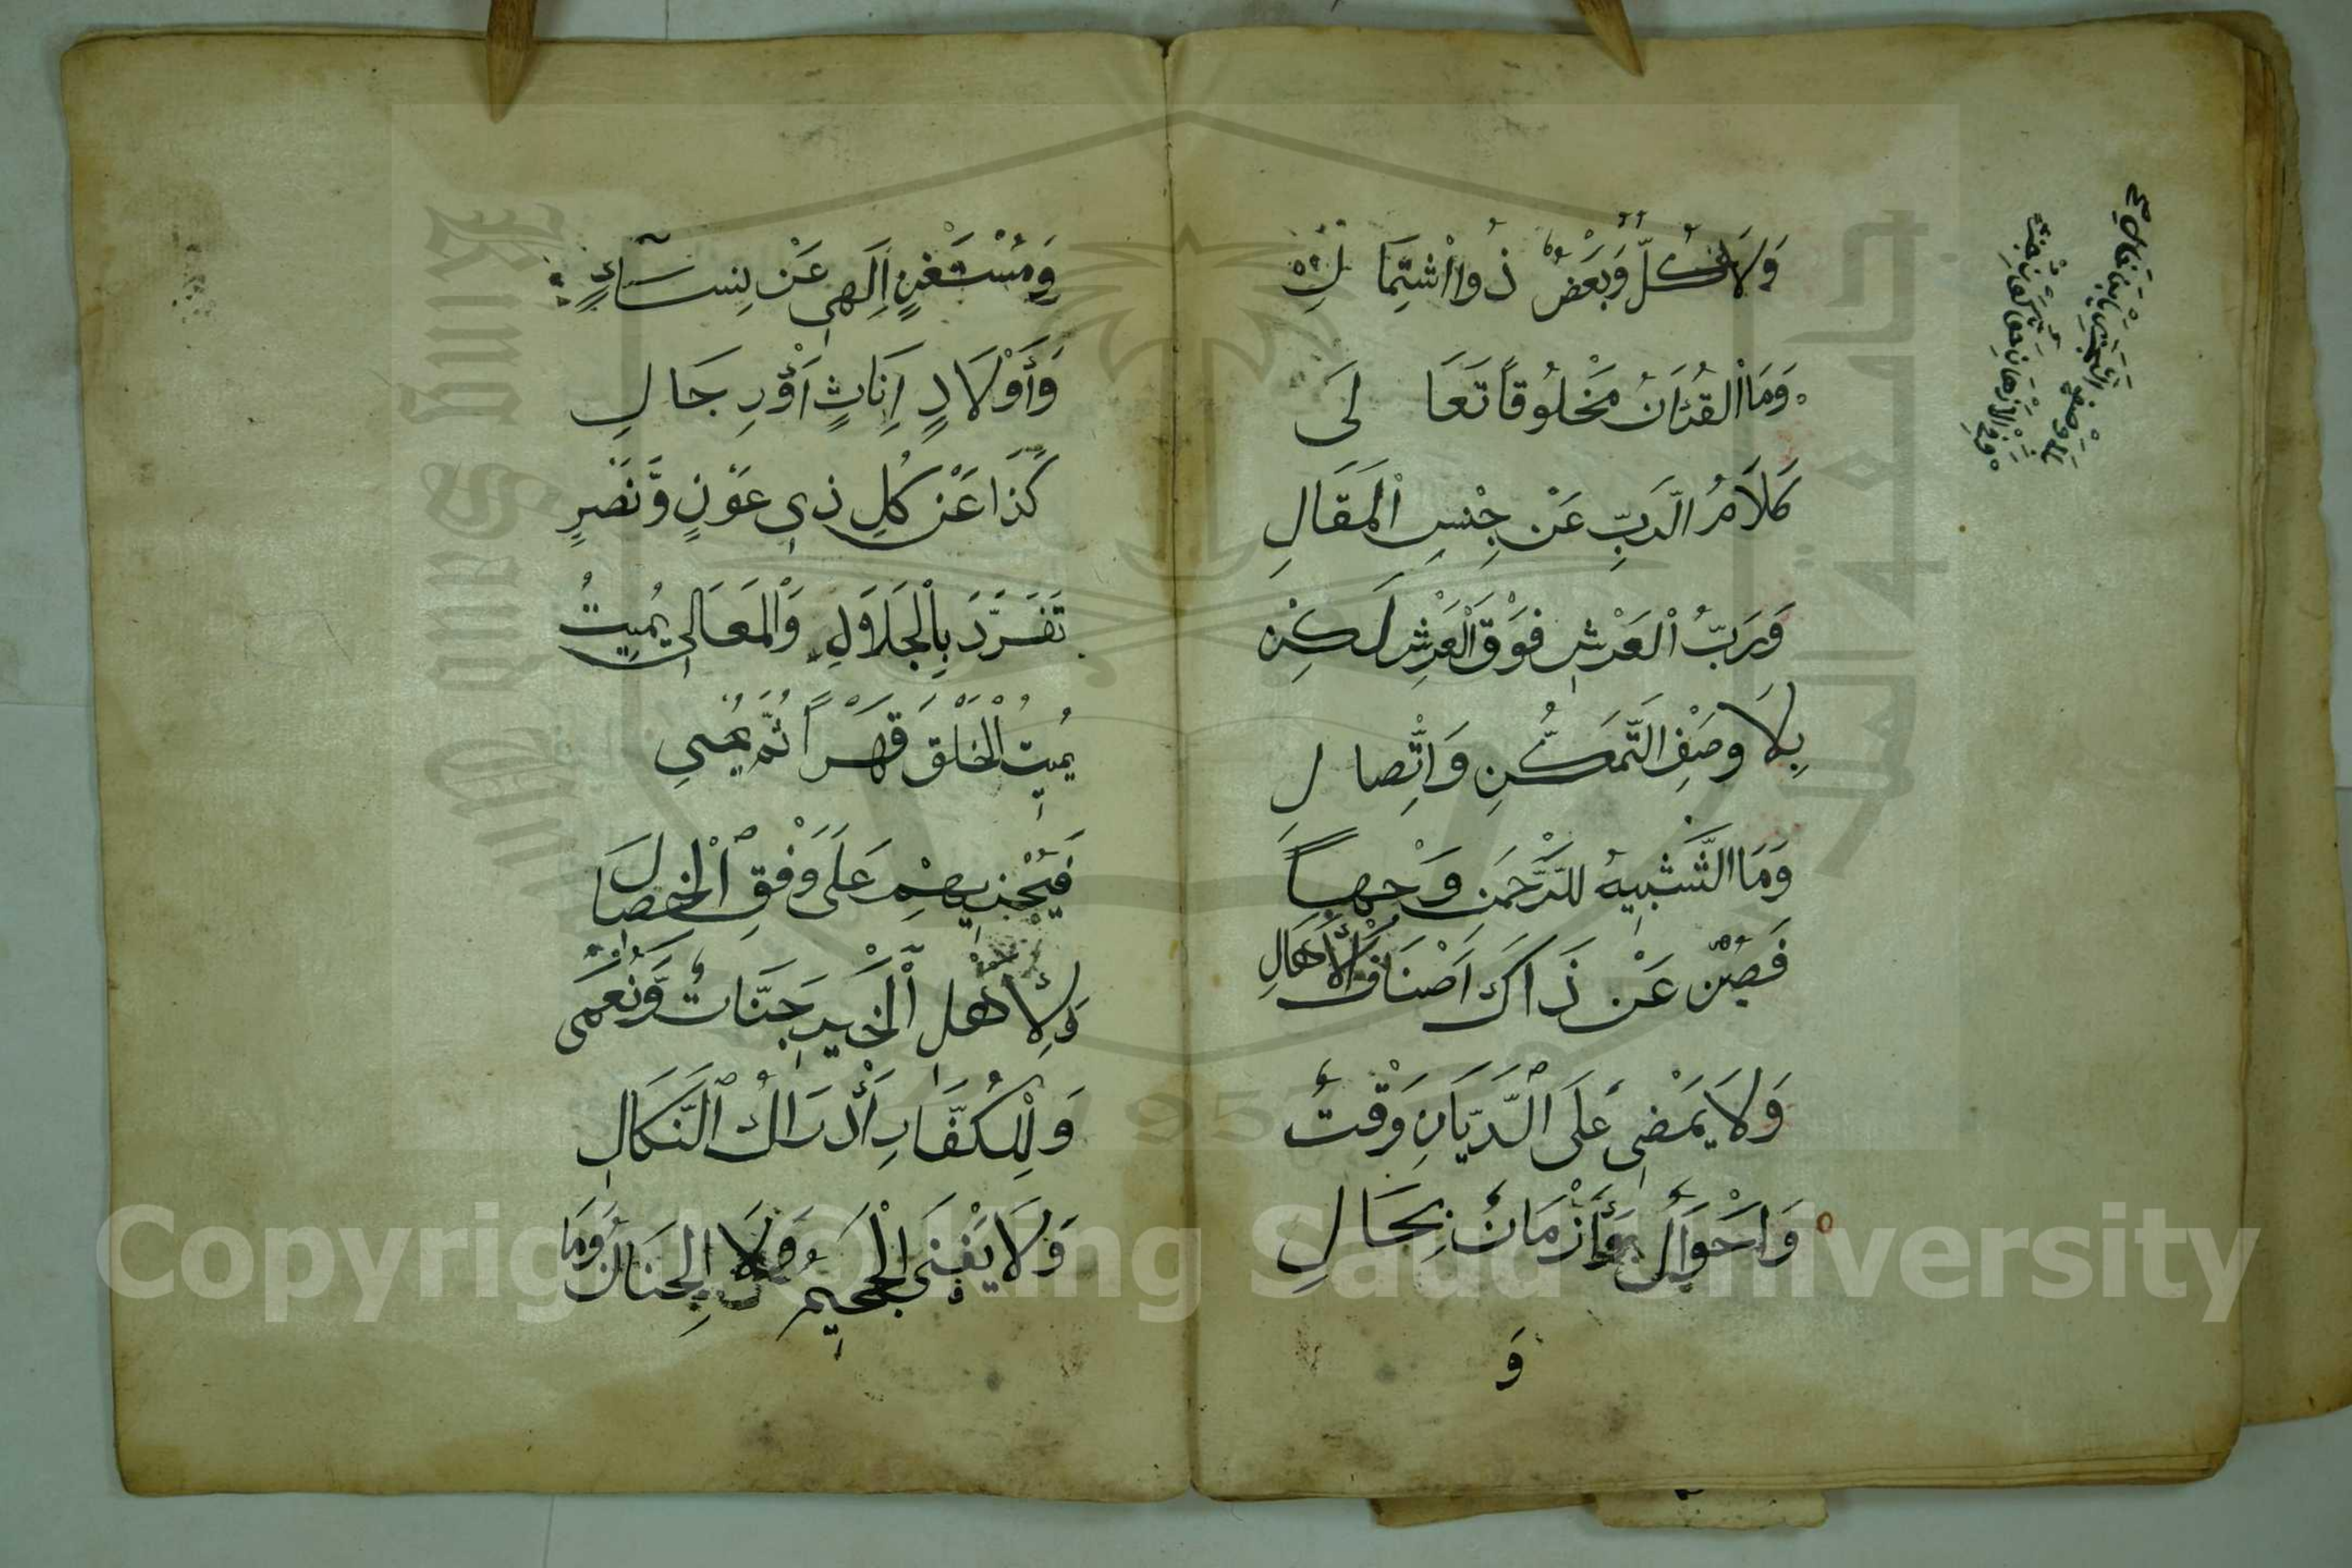 وَلَا كُلٌّ وَبَعْضٌ ذُوا اشْتِمَا لِ
وَمَا الْقُرْاٰنُ مَخْلُوقًا تَعَا لَى
كَلَامُ الرَّبِّ عَنْ جِنْسِ الْمَقَالِ
وَرَبُّ الْعَرْشِ فَوْقَ الْعَرْشِ لَكِنْ
بِلَا وَصْفِ التَّمَكُّنِ وَاتِّصَا لِ
وَمَا التَّشْبِيهُ لِلرَّحْمَنِ وَجْهًا
فَصُنْ عَنْ ذَاكَ اَصْنَافَ الْأَهَالِ
وَلَا يَمْضِي عَلَى الدَّيَّانِ وَقْتٌ
وَاَحْوَالٌ وَأَزْمَانٌ بِحَالِ
وَ
وَمُسْتَغْنٍ اِلَهِي عَنْ نِسَآءٍ
وَأَوْلَادٍ اِنَاثٍ اَوْ رِجَالِ
كَذَا عَنْ كُلِ ذِي عَوْنٍ وَّنَصْرٍ
تَفَرَّدَ بِالْجَلَالِ وَالْمَعَالِي يُمِيتُ
يُمِيتُ الْخَلْقَ قَهْرًا ثُمَّ يُحْيِي
فَيَجْزِيهِمْ عَلَى وَفْقِ الْخِصَالِ
وَلِأَهْلِ الْخَيْرِ جَنَّاتٌ وَّنُعْمَى
وَلِلْكُفَّارِ أَدْرَاكُ النَّكَالِ
وَلَا يَفْنَى الْجَحِيمُ وَلَا الْجِنَانُ وَمَا